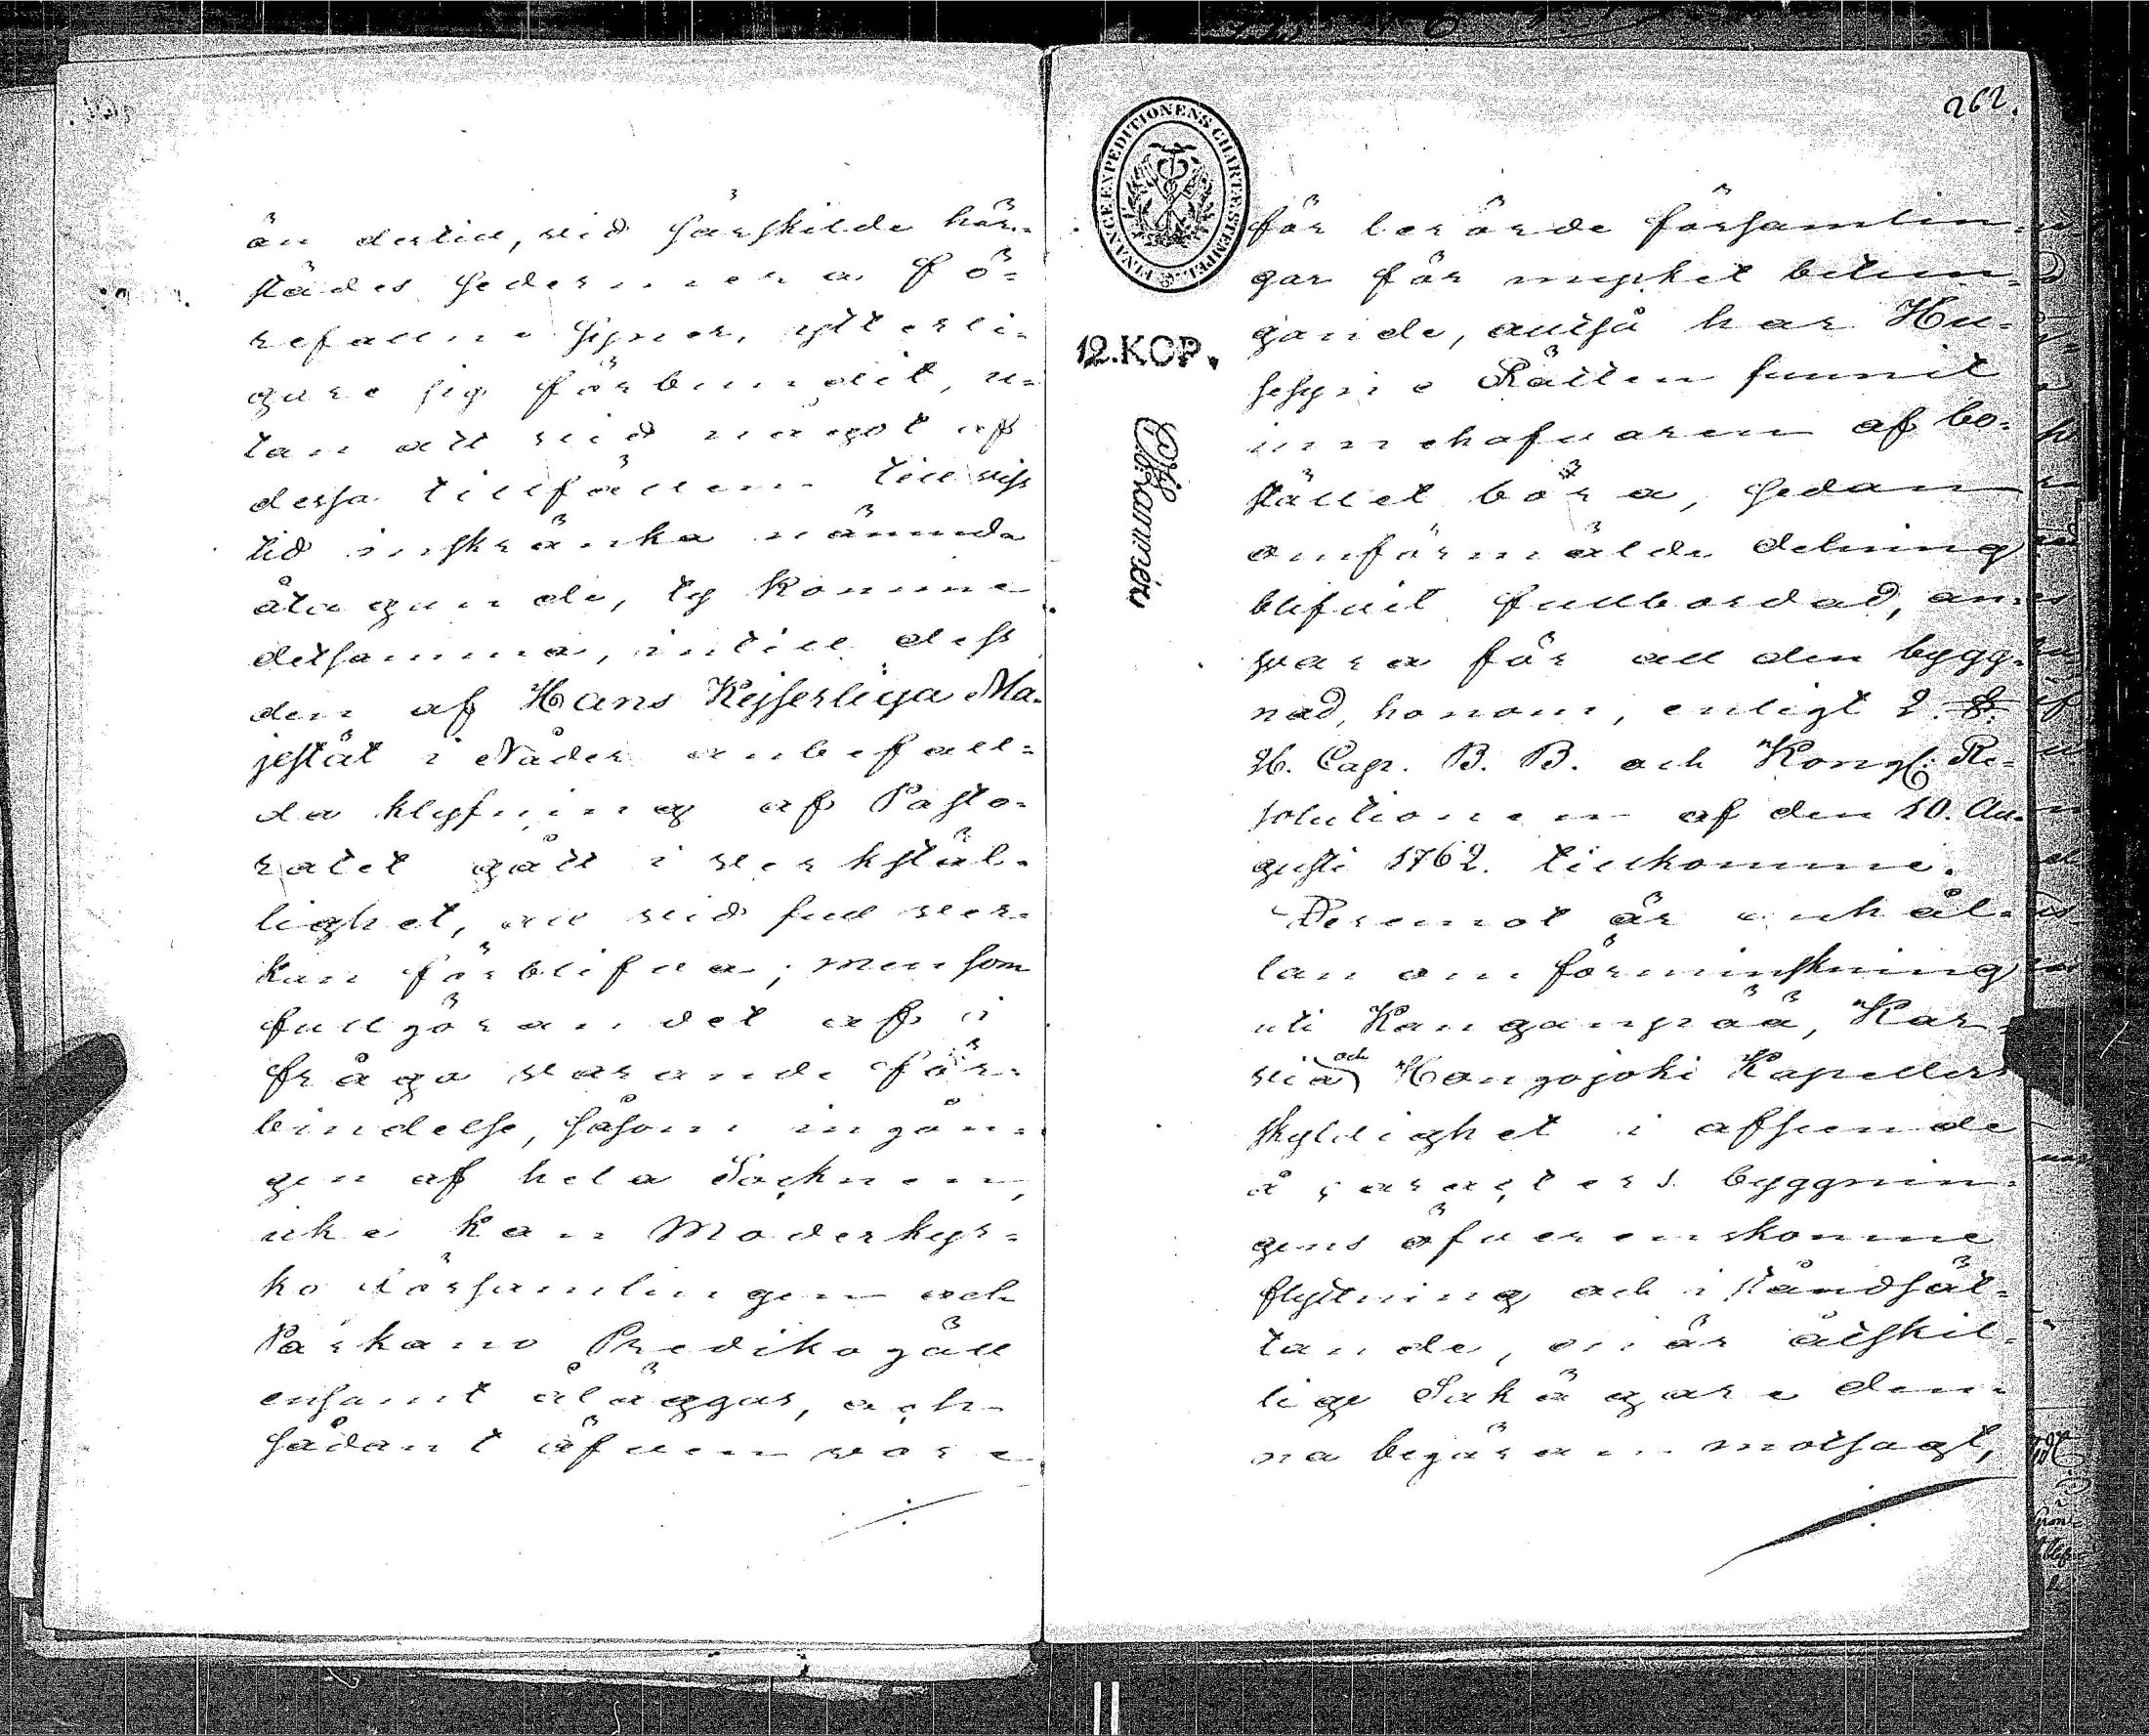 än dertill, vid särskilde här-
städes sedermera fö-
refallne Syner, ytterli-
gare sig förbundit, u-
tan att vid något af
dessa tillfällen till viss
tid inskränka nämnda
åtagande, ty komme
detsamma, intill dess
den af Hans Kejserliga Ma-
jestät i Nåder anbefall-
da klyfning af Pasto-
ratet gått i verkstäl-
lighet, att vid full ver-
kan förblifva; men som
fullgörandet af i
fråga varande för-
bindelse, såsom ingån-
gen af hela Socknen,
icke kan Moderkyr-
ko församlingen och
Parkano Predikogäll
ensamt åläggas, och
sådant äfven vore
262.
FINANCE EXPEDITIONENS CHARTÆ STEMPEL
12. KOP.
för berörde församlin-
gar för mycket betun-
gande, alltså har Hu-
sesyne Rätten funnit
innehafvaren af bo-
stället böra, sedan
omförmälde delning
blifvit fullbordad, an-
svara för all den bygg-
nad, honom, enligt 2. §.
26. Cap. B. B. och Kongl: Re-
solutionen af den 10. Au-
gusti 1762. tillkomme.
Deremot är anhål-
lan om förminskning
uti Kanganpää, Kar-
via och Hongojoki Kapellers
skyldighet i afseende
å caracters byggnin-
gens öfverenskomne
flyttning och i ståndsät-
tande, enär åtskil-
lige Sakägare den-
na begäran motsagt,